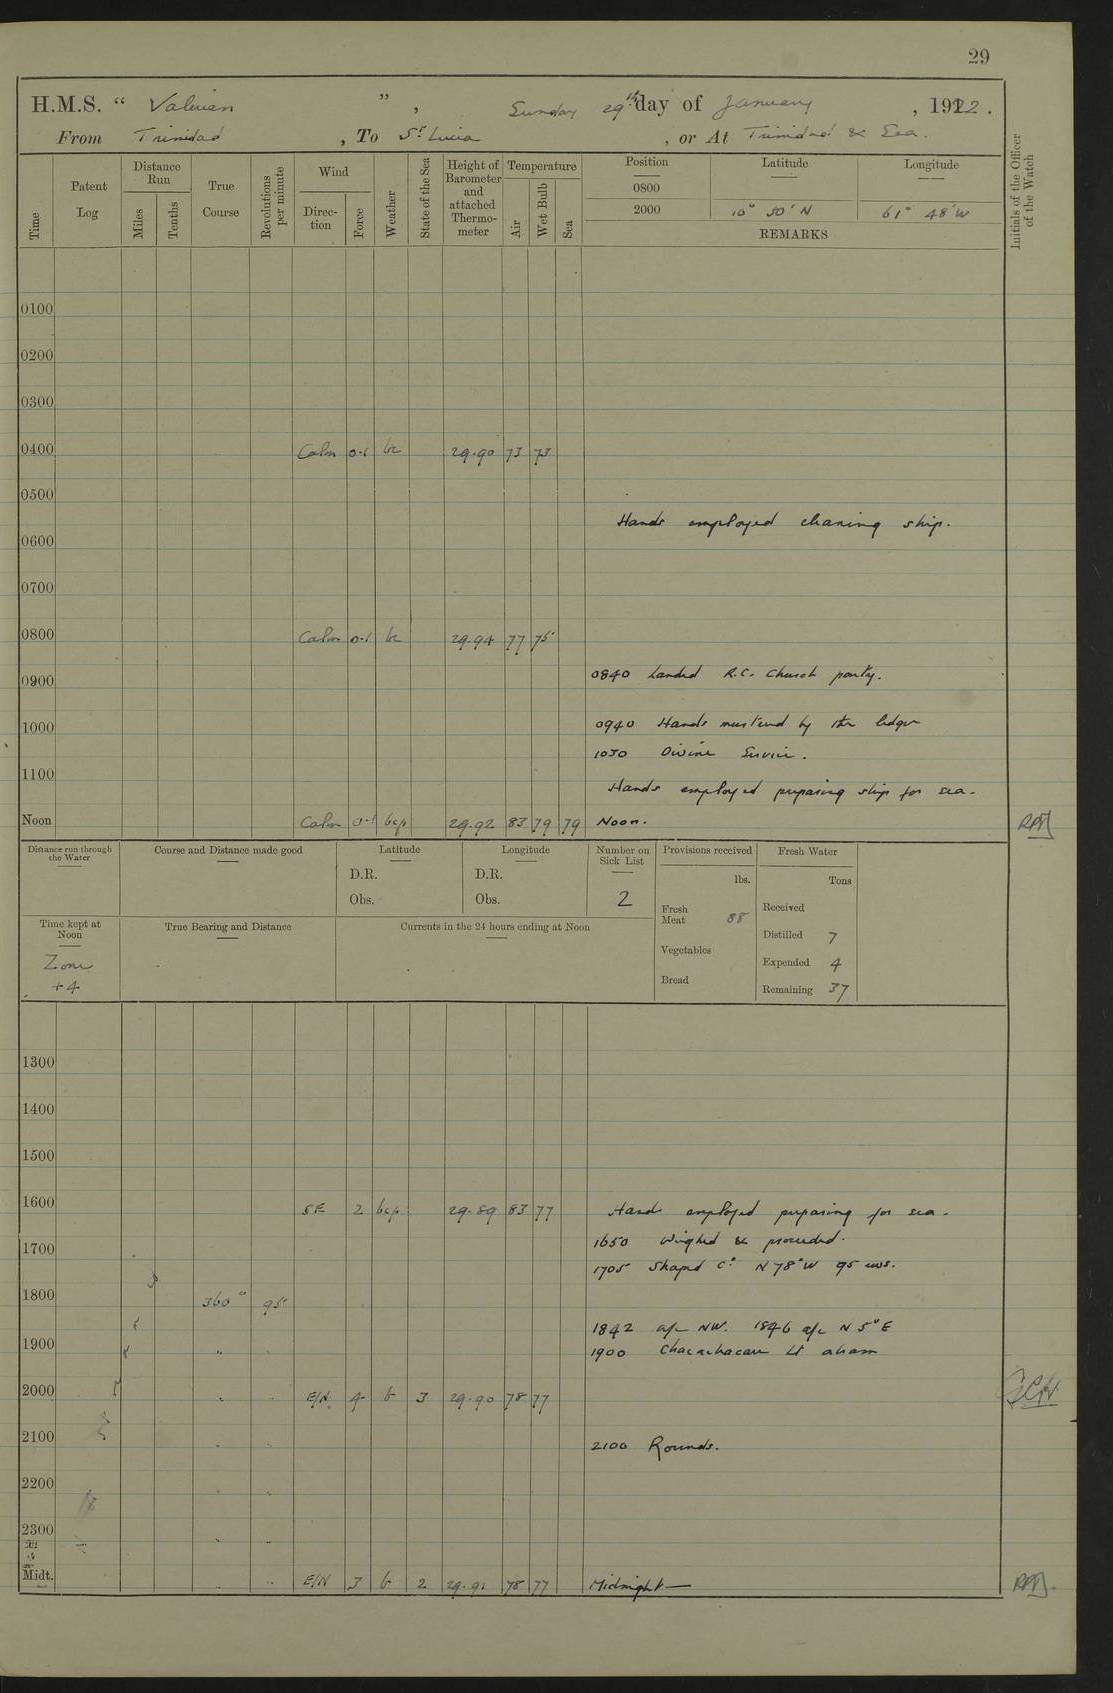 29
H.M.S. “ Valerian ” , Sunday 29th day of January , 1922 .
From Trinidad , To St Lucia , or At Trinidad & Sea .
Time
Patent Log
Distance Run
Miles
Tenths
True Course
Revolutions per minute
Wind
Direc- tion
Force
Weather
State of the Sea
Height of Barometer and attached Thermo- meter
Temperature
Air
Wet Bulb
Sea
Position Latitude Longitude
0800
2000 10° 50' N 61° 48' W
REMARKS
Initials of the Officer of the Watch
0100
0200
0300
0400 Calm 0-1 bc 29.90 73 73
0500
Hands employed cleaning ship.
0600
0700
0800 Calm 0-1 bc 29.94 77 75
0840 Landed R.C. Church party.
0900
0940 Hands mustered by the ledger
1000
1030 Divine Service.
1100
Hands employed preparing ship for sea.
Noon Calm 0-1 bcp 29.92 83 79 79 Noon.
Distance run through the Water
Course and Distance made good
Latitude
D.R.
Obs.
Longitude
D.R.
Obs.
Number on Sick List
2
Provisions received
lbs.
Fresh Meat 88
Vegetables
Bread
Fresh Water
Tons
Received
Distilled 7
Expended 4
Remaining 37
Time kept at Noon
Zone
+4
True Bearing and Distance
Currents in the 24 hours ending at Noon
1300
1400
1500
1600 SE 2 bcp 29.89 83 77 Hands employed preparing for sea.
1650 Weighed & proceeded.
1700
1705 Shaped Co. N 78° W 95 revs.
1800 360° 95
1842 a/c NW. 1846 a/c N 5° E
1900 " Chacachacare Lt abeam
2000 E/N. 4 b 3 29.90 78 77
2100 2100 Rounds.
2200
2300
Midt. E/N 3 b 2 29.91 78 77 Midnight